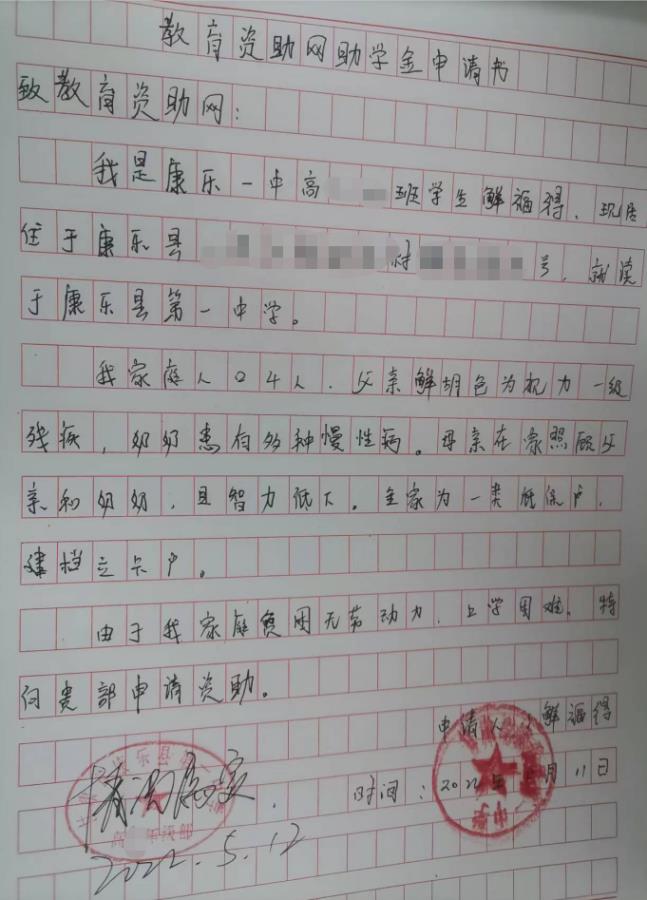 教育资助网助学金申请书
致教育资助网:
我是康乐一中高 班学生鲜福得,现居
住于康乐县 村 号,就读
于康乐县第一中学。
我家庭人口4人,父亲鲜胡色为视力一级
残疾,奶奶患有多种慢性病。母亲在家照顾父
亲和奶奶,且智力低下。全家为一类低保户,
建档立卡户。
由于我家庭贫困无劳动力,上学困难,特
向贵部申请资助。
申请人:鲜福得
时间:2022年5月11日
2022.5.12